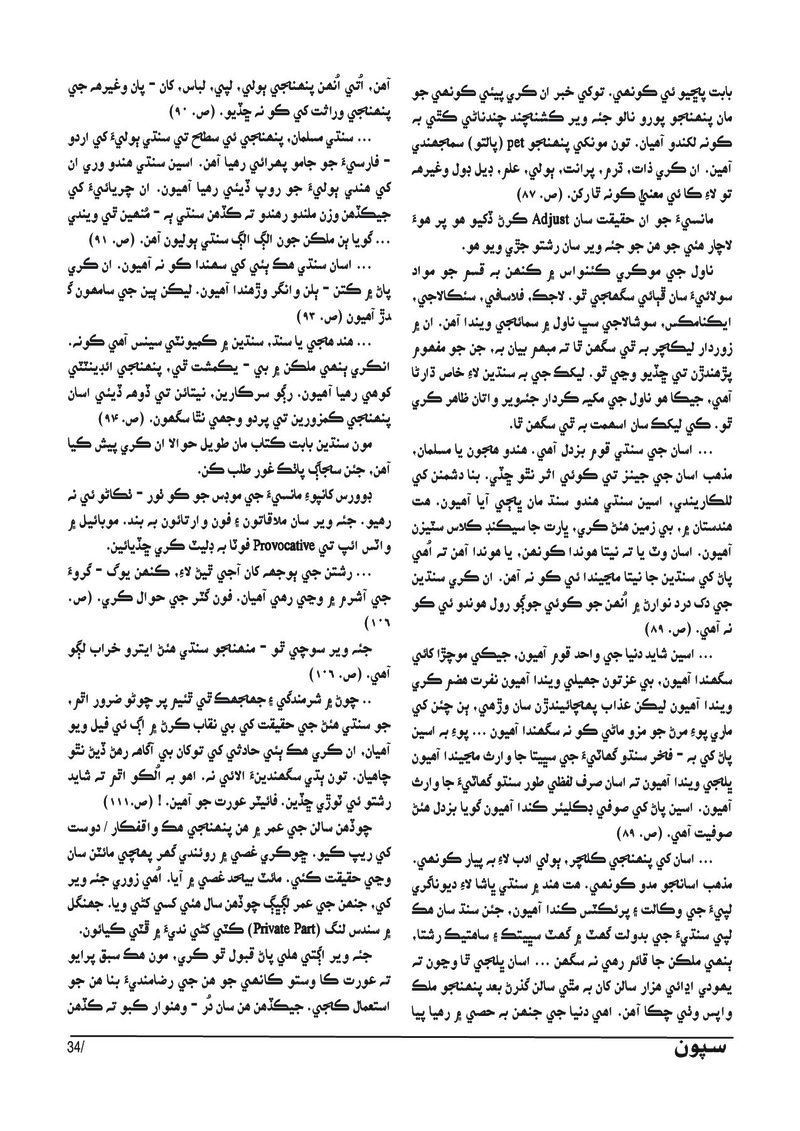 بابت پڇيو ئي ڪونهي. توکي خبر ان ڪري پيئي ڪونهي جو
مان پنهنجو پورو نالو جئه وير ڪشنچند چندناڻي ڪٿي به
ڪونه لکندو آهيان. تون مونکي پنهنجو pet (پالتو) سمجهندي
آهين. ان ڪري ذات، ڌرم، پرانت، ٻولي، علم، ڊيل ڊول وغيرهه
تو لاءِ ڪا ئي معنيٰ ڪونه ٿا رکن. (ص. ۸۷)
مانسيءَ جو ان حقيقت سان Adjust ڪرڻ ڏکيو هو پر هوءَ
لاچار هئي جو هن جو جئه وير سان رشتو جڙي ويو هو.
ناول جي موڪري ڪئنواس ۾ ڪنهن به قسم جو مواد
سولائيءَ سان ڍٻائي سگهجي ٿو. لاجڪ، فلاسافي، سئڪالاجي،
ايڪنامڪس، سوشالاجي سڀ ناول ۾ سمائجي ويندا آهن. ان ۾
زوردار ليڪچر به ٿي سگهن ٿا ته مبهم بيان به، جن جو مفهوم
پڙهندڙن تي ڇڏيو وڃي ٿو. ليکڪ جي به سنڌين لاءِ خاص ڌارڻا
آهي، جيڪا هو ناول جي مکيه ڪردار جئه‌وير واتان ظاهر ڪري
ٿو. ڪي ليکڪ سان اسهمت به ٿي سگهن ٿا.
... اسان جي سنڌي قوم بزدل آهي. هندو هجون يا مسلمان،
مذهب اسان جي جينز تي ڪوئي اثر نٿو ڇڏي. بنا دشمن کي
للڪاريندي، اسين سنڌي هندو سنڌ مان ڀڄي آيا آهيون. هت
هندستان ۾، بي زمين هئڻ ڪري، ڀارت جا سيڪنڊ ڪلاس سٽيزن
آهيون. اسان وٽ يا ته نيتا هوندا ڪونهن، يا هوندا آهن ته اُهي
پاڻ کي سنڌين جا نيتا مڃيندا ئي ڪو نه آهن. ان ڪري سنڌين
جي دک درد نوارڻ ۾ اُنهن جو ڪوئي جوڳو رول هوندو ئي ڪو
نه آهي. (ص. ۸۹)
... اسين شايد دنيا جي واحد قوم آهيون، جيڪي موچڙا کائي
سگهندا آهيون، بي عزتون جهيلي ويندا آهيون نفرت هضم ڪري
ويندا آهيون ليڪن عذاب پهچائيندڙن سان وڙهي، ٻن چئن کي
ماري پوءِ مرڻ جو مزو ماڻي ڪو نه سگهندا آهيون ... پوءِ به اسين
پاڻ کي به - فخر سنڌو گهاٽيءَ جي سڀيتا جا وارث مڃيندا آهيون
ڀلجي ويندا آهيون ته اسان صرف لفظي طور سنڌو گهاٽيءَ جا وارث
آهيون. اسين پاڻ کي صوفي ڊڪليئر ڪندا آهيون گويا بزدل هئڻ
صوفيت آهي. (ص. ۸۹)
... اسان کي پنهنجي ڪلچر، ٻولي ادب لاءِ به پيار ڪونهي.
مذهب اسانجو مدو ڪونهي. هت هند ۾ سنڌي ڀاشا لاءِ ديوناگري
لپيءَ جي وڪالت ۽ پرئڪٽس ڪندا آهيون، جئن سنڌ سان هڪ
لپي سنڌيءَ جي بدولت گهٽ ۾ گهٽ سڀيتڪ ۽ ساهتيڪ رشتا،
ٻنهي ملڪن جا قائم رهي نه سگهن ... اسان ڀلجي ٿا وڃون ته
يهودي اڍائي هزار سالن کان به مٿي سالن گذرڻ بعد پنهنجو ملڪ
واپس وٺي چڪا آهن. اهي دنيا جي جنهن به حصي ۾ رهيا پيا
آهن، اُتي اُنهن پنهنجي ٻولي، لپي، لباس، کان - پان وغيرهه جي
پنهنجي وراثت کي ڪو نه ڇڏيو. (ص. ۹۰)
... سنڌي مسلمان، پنهنجي ئي سطح تي سنڌي ٻوليءَ کي اردو
- فارسيءَ جو جامو پهرائي رهيا آهن. اسين سنڌي هندو وري ان
کي هندي ٻوليءَ جو روپ ڏيئي رهيا آهيون. ان چريائيءَ کي
جيڪڏهن وزن ملندو رهندو ته ڪڏهن سنڌي به - مُنهين ٿي ويندي
... گويا ٻن ملڪن جون الڳ الڳ سنڌي ٻوليون آهن. (ص. ۹۱)
... اسان سنڌي هڪ ٻئي کي سهندا ڪو نه آهيون. ان ڪري
پاڻ ۾ ڪتن - ٻلن وانگر وڙهندا آهيون. ليڪن ٻين جي سامهون گ
دڙ آهيون (ص. ۹۳)
... هند هجي يا سنڌ، سنڌين ۾ ڪميونٽي سينس آهي ڪونه.
انڪري ٻنهي ملڪن ۾ بي - يڪمشت ٿي، پنهنجي ائڊينٽٽي
کوهي رهيا آهيون. رڳو سرڪارين، نيتائن تي ڏوهه ڏيئي اسان
پنهنجي ڪمزورين تي پردو وجهي نٿا سگهون. (ص. ۹۴)
مون سنڌين بابت ڪتاب مان طويل حوالا ان ڪري پيش ڪيا
آهن، جئن سڄاڳ پاٺڪ غور طلب ڪن.
ڊوورس کانپوءِ مانسيءَ جي موڊس جو ڪو ٺور - ٺڪاڻو ئي نه
رهيو. جئه وير سان ملاقاتون ۽ فون وارتائون به بند. موبائيل ۾
واٽس ائپ تي Provocative فوٽا به ڊليٽ ڪري ڇڏيائين.
... رشتن جي ٻوجهه کان آجي ٿيڻ لاءِ، ڪنهن يوگ - گروءَ
جي آشرم ۾ وڃي رهي آهيان. فون گٽر جي حوال ڪري. (ص.
۱۰۶)
جئه وير سوچي ٿو - منهنجو سنڌي هئڻ ايترو خراب لڳو
آهي. (ص. ۱۰۶)
.. چوڻ ۾ شرمندگي ۽ جهجهڪ ٿي ٿئيم پر چوڻو ضرور اٿم،
جو سنڌي هئڻ جي حقيقت کي بي نقاب ڪرڻ ۾ اڳ ئي فيل ويو
آهيان، ان ڪري هڪ ٻئي حادثي کي توکان بي آگاهه رهڻ ڏيڻ نٿو
چاهيان. تون ٻڌي سگهندينءَ الائي نه. اهو به الڪو اٿم ته شايد
رشتو ئي ٽوڙي ڇڏين. فائيٽر عورت جو آهين. ! (ص.۱۱۱)
چوڏهن سالن جي عمر ۾ هن پنهنجي هڪ واقفڪار / دوست
کي ريپ ڪيو. ڇوڪري غصي ۾ روئندي گهر پهچي مائٽن سان
وڃي حقيقت ڪئي. مائٽ بيحد غصي ۾ آيا. اُهي زوري جئه وير
کي، جنهن جي عمر لڳ‌ڀڳ چوڏهن سال هئي کسي کڻي ويا. جهنگل
۾ سندس لنگ (Private Part) ڪٽي کڻي نديءَ ۾ ڦٽي ڪيائون.
جئه وير اڳتي هلي پاڻ قبول ٿو ڪري، مون هڪ سبق پرايو
ته عورت ڪا وستو ڪانهي جو هن جي رضامنديءَ بنا هن جو
استعمال ڪجي. جيڪڏهن هن سان دُر - وهنوار ڪبو ته ڪڏهن
سپون
34/